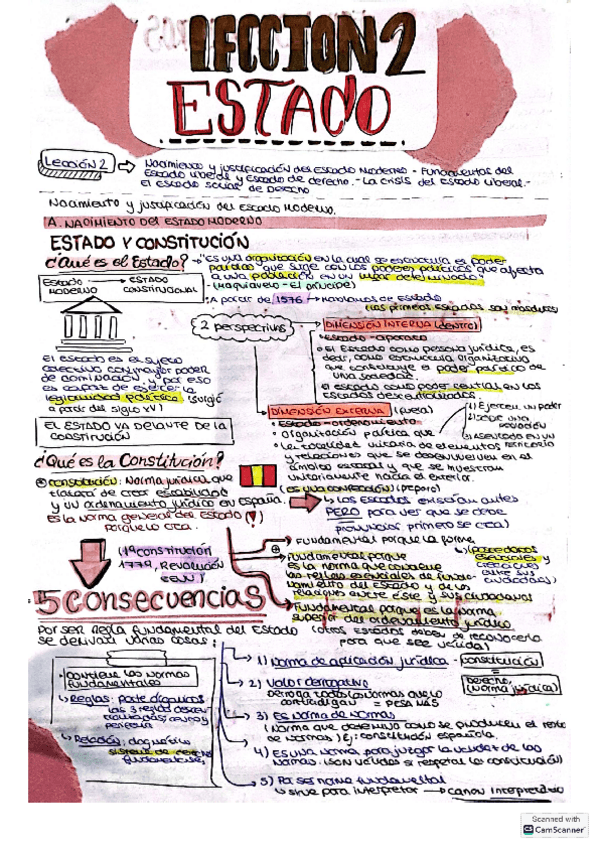 LECCION 2
ESTADO
Lección 2 → Nacimiento y justificación del Estado Moderno - Fundamentos del
Estado liberal y Estado de derecho. - La crisis del Estado liberal. -
El estado social de Derecho
Nacimiento y justificación del estado moderno.
A. NACIMIENTO DEL ESTADO MODERNO
ESTADO Y CONSTITUCIÓN
¿Qué es el Estado? → "Es una organización en la cual se estructura el poder
político" que surge con los poderes políticos "que afecta
a una población en un lugar determinado"
- (Maquiavelo - El príncipe)
ESTADO MODERNO → ESTADO CONSTITUCIONAL
A partir de 1576 → Hablamos de Estado
2 perspectivas
DIMENSIÓN INTERNA (dentro)
Estado - aparato
El Estado como persona jurídica, es
decir, como estructura organizativa
que constituye el poder político de
una sociedad.
El estado como poder central en los
estados descentralizados
El estado es el sujeto
colectivo con mayor poder
de dominación, y por eso
es capaz de ejercer la
legitimidad política (surgió
a partir del siglo XV)
DIMENSIÓN EXTERNA (fuera)
Estado - ordenamiento
Organización política que
la totalidad unitaria de elementos
y relaciones que se desenvuelven en el
ámbito estatal y que se muestran
unitariamente hacia el exterior.
1) Ejercer un poder
2) Sobre una población
3) Asentado en un territorio
EL ESTADO VA DELANTE DE LA
CONSTITUCIÓN
¿Qué es la Constitución?
Constitución: Norma jurídica que
tratará de crear estabilidad
y un ordenamiento jurídico en España.
Es la norma general del Estado
porque lo crea.
los estados existían antes
PERO para ver que se debe
pronunciar primero se crea)
(1ª Constitución
1779, Revolución
EEUU)
Fundamental porque la forma
Fundamental porque
es la norma que contiene
las reglas esenciales de funcio-
namiento del Estado y de las
relaciones entre éste y sus ciudadanos
Fundamental porque es la norma
superior del ordenamiento jurídico
(otros estados deben de reconocerla
para que sea válida)
5 CONSECUENCIAS
Por ser regla fundamental del Estado
se derivan varias cosas:
Contiene las normas
fundamentales
Reglas: parte orgánica
1) Norma de aplicación jurídica - Constitución
=
Derecho
(norma jurídica)
2) Valor derogativo
Deroga todas las normas que lo
contradigan
3) Es norma de normas
(Norma que determina como se producen el resto
de normas) Ej: constitución española.
4) Es una norma para juzgar la validez de las
normas. (Son válidas si respetan la constitución)
5) Por ser norma fundamental
sirve para interpretar → canon interpretativo
Scanned with
CamScanner